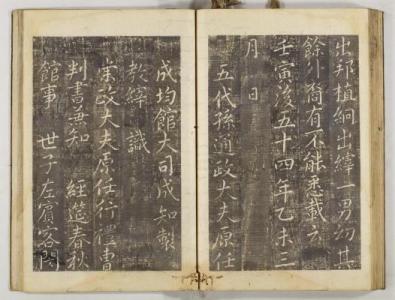 出邦植絅出緯一男幼其
餘外裔有不能悉載云
壬寅後五十四年乙未三
月 日
五代孫通政大夫原任
成均館大司成知製
教緯識
崇政大夫原任行禮曹
判書兼知 經筵春秋
館事 世子左賓客閔